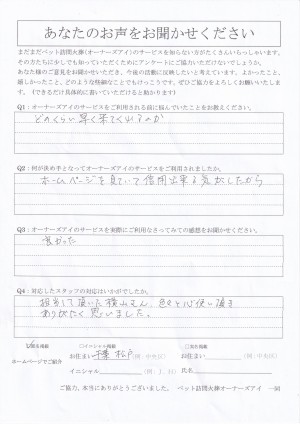 あなたのお声をお聞かせください
まだまだペット訪問火葬(オーナーズアイ)のサービスを知らない方がたくさんいらっしゃいます。
その方たちに少しでも知っていただくためにアンケートにご協力いただけないでしょうか。
あなた様のご意見をお聞かせいただき、今後の活動に反映したいと考えています。よかったこと、
嬉しかったこと、どのような些細なことでもけっこうです。ぜひご協力をよろしくお願いいたしま
す。（できるだけ具体的に書いていただけると助かります）
Q1：オーナーズアイのサービスをご利用される前に悩んでいたことをお教えください。
どのくらい早く来てくれるのか
Q2：何が決め手となってオーナーズアイのサービスをご利用されましたか。
ホームページを見ていて信用出来る気がしたから
Q3：オーナーズアイのサービスを実際にご利用なさってみての感想をお聞かせください。
良かった
Q4：対応したスタッフの対応はいかがでしたか。
担当して頂いた横山さん、色々と心使い頂き
ありがたく思いました。
□イニシャル掲載
ホームページでご紹介
お住まい 千葉 松戸 (例：中央区)
お住まい (例：中央区)
イニシャル (例：J．H)
氏名
ご協力、本当にありがとうございました。 ペット訪問火葬オーナーズアイ 一同